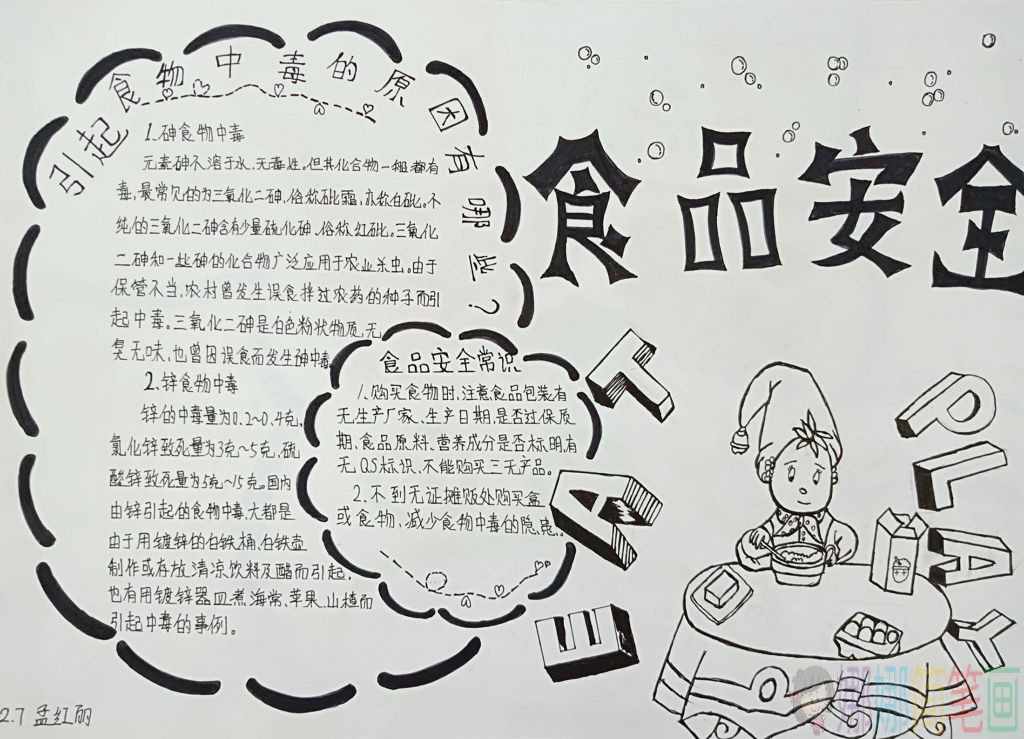 引起食物中毒的原因有哪些?
1.砷食物中毒
元素砷不溶于水,无毒性。但其化合物一般都有
毒,最常见的为三氧化二砷,俗称砒霜,亦称白砒。不
纯的三氧化二砷含有少量硫化砷,俗称红砒。三氧化
二砷和一些砷的化合物广泛应用于农业杀虫。由于
保管不当,农村曾发生误食拌过农药的种子而引
起中毒。三氧化二砷是白色粉状物质,无
臭无味,也曾因误食而发生砷中毒。
2.锌食物中毒
锌的中毒量为0.2~0.4克,
氯化锌致死量为3克~5克,硫
酸锌致死量为5克~15克。国内
由锌引起的食物中毒,大都是
由于用镀锌的白铁桶,白铁壶
制作或存放清凉饮料及醋而引起,
也有用镀锌器皿煮海棠、苹果、山楂而
引起中毒的事例。
食品安全常识
1.购买食物时,注意食品包装有
无生产厂家、生产日期,是否过保质
期、食品原料、营养成分是否标明,有
无QS标识,不能购买三无产品。
2.不到无证摊贩处购买盒
或食物,减少食物中毒的隐患。
食品安全
EAT
PLAY
2.7 孟红丽
娜娜简笔画